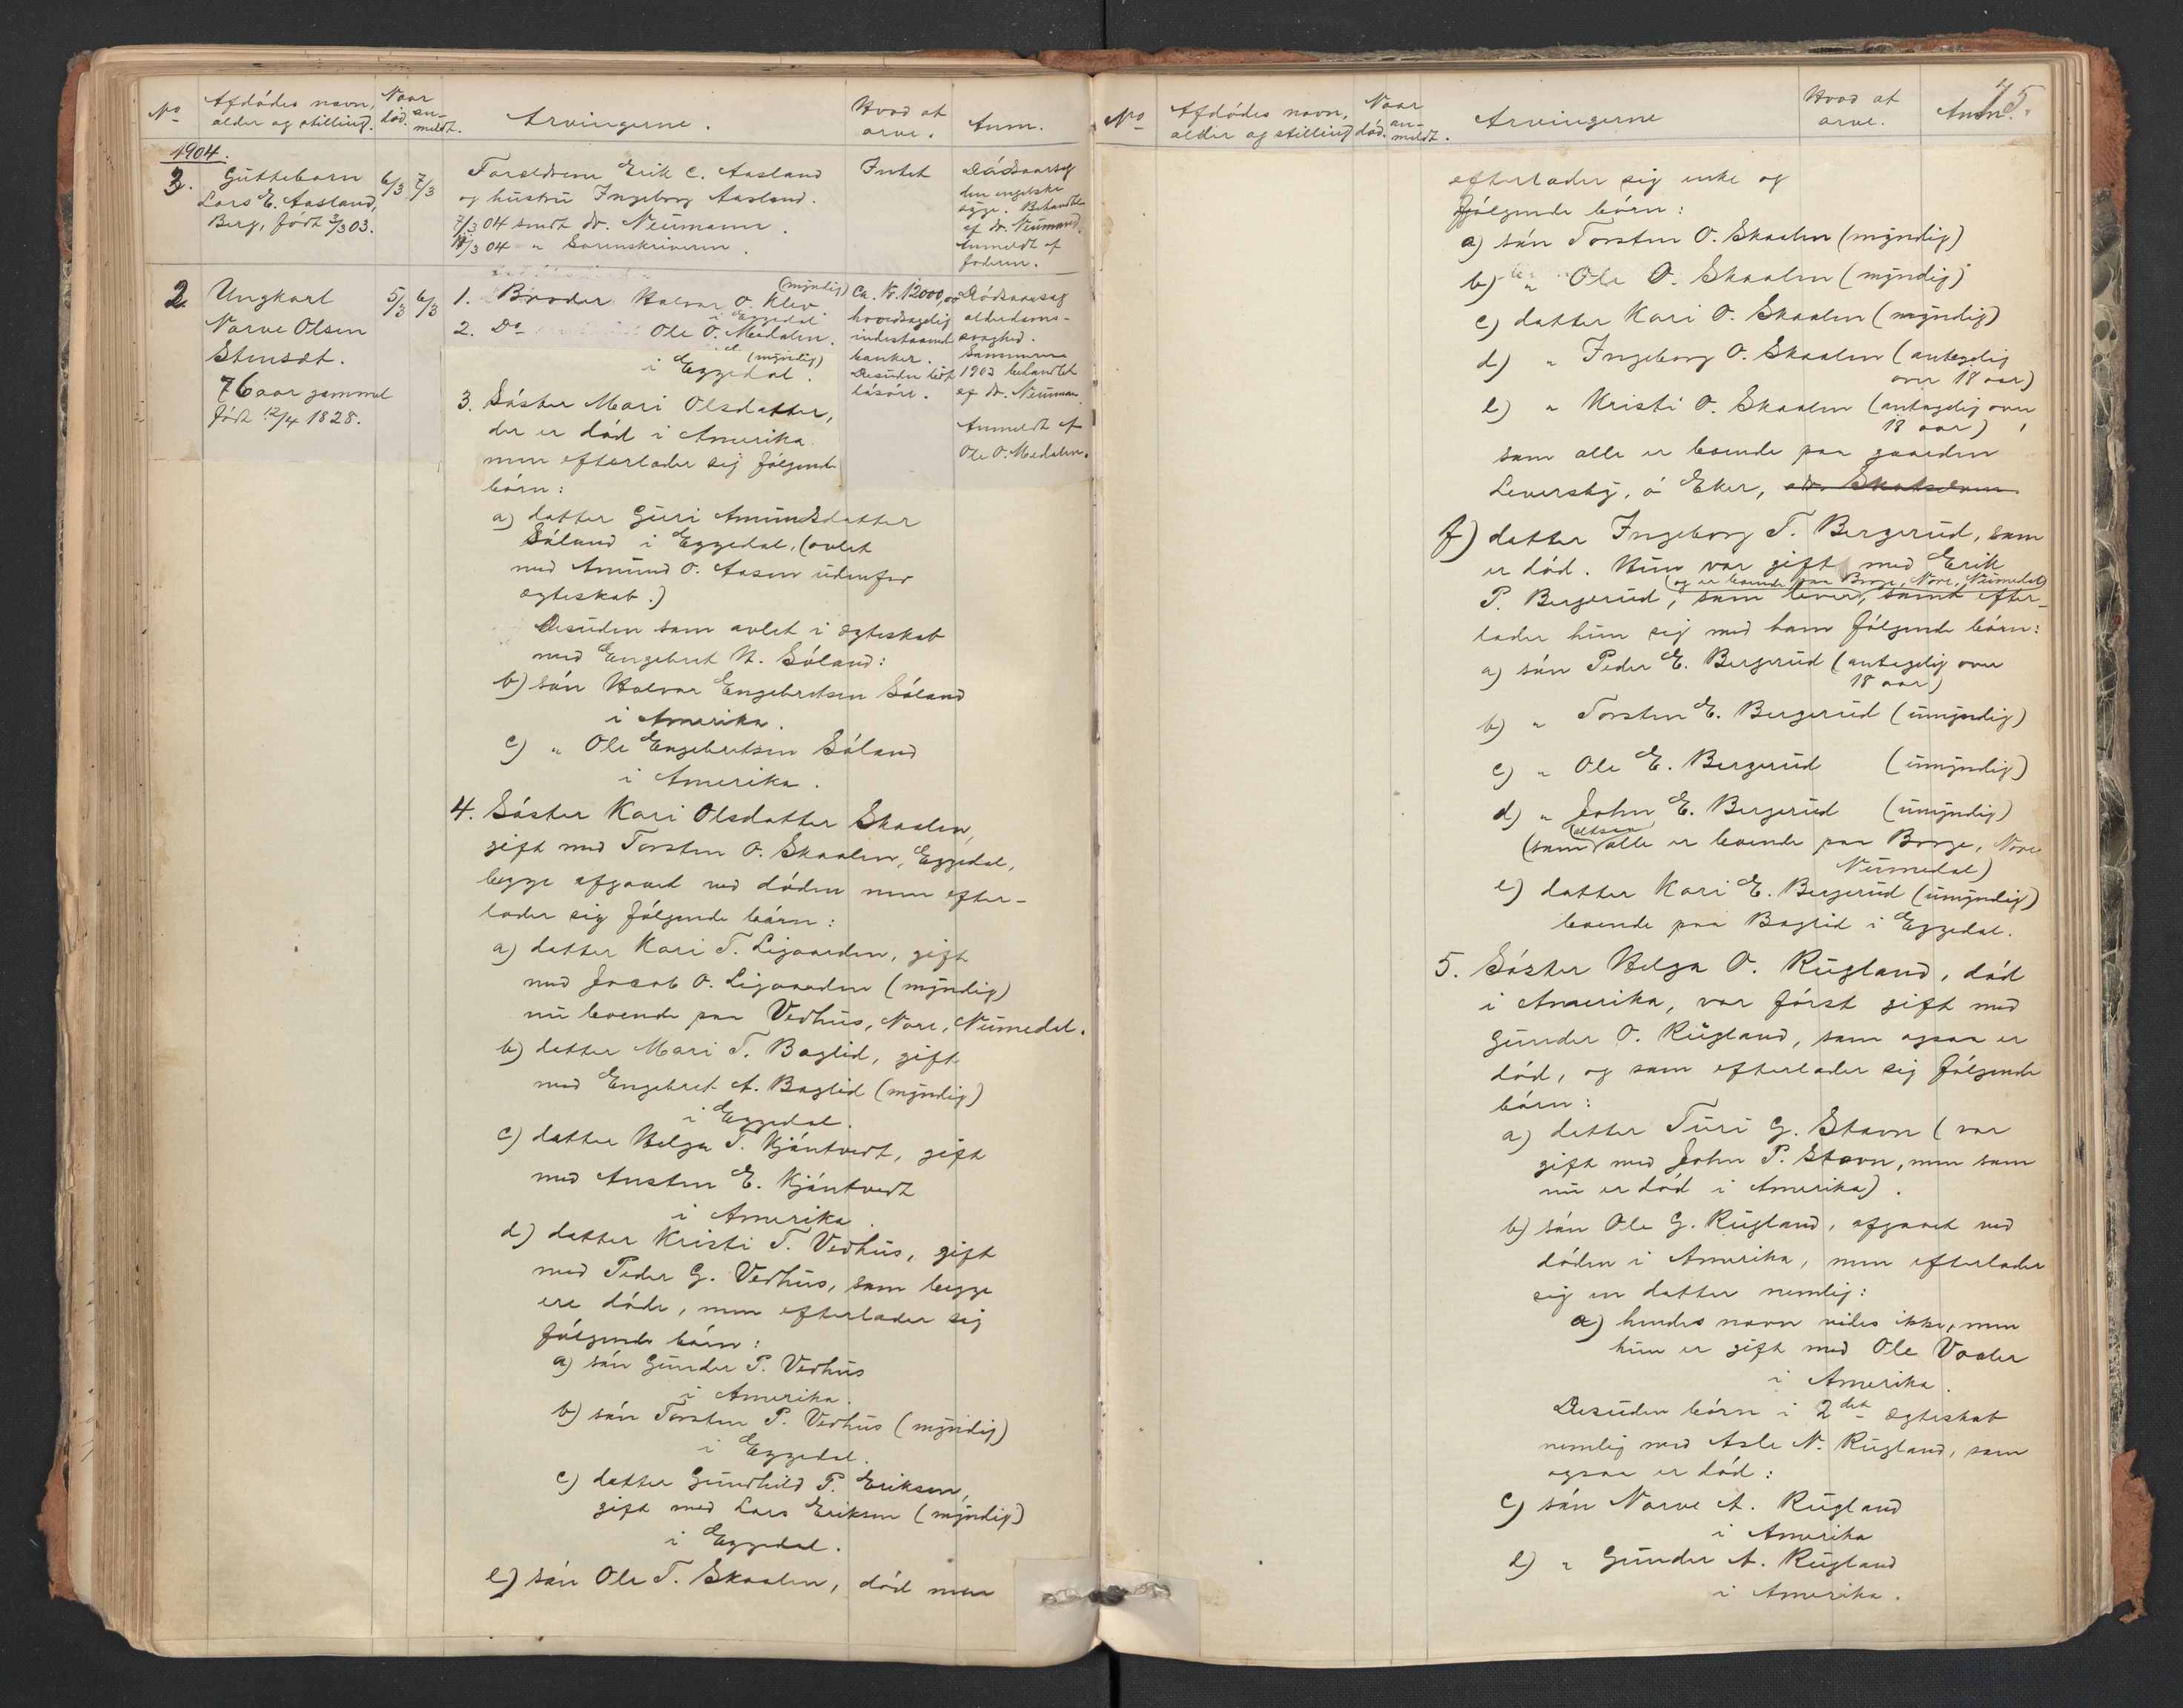 No Afdødes navn, alder og stilling. Naar død. an-meldt. Arvingerne. Hvad at arve. Anm.
1904.
3. Guttebarn 6/3 7/3 Forældrene Erik C. Aasland Intet Dødsaarsag
Lars E. Aasland, og hustru Ingeborg Aasland. den engelske
Berg, født 3/3 03. 7/3 04 sendt dr. Neumann. syge. Behandlet
/3 04 " Sorenskriveren. af dr. Neumann.
Anmeldt af
faderen.
2. Ungkarl 5/3 6/3 1. Broder Halvor O. Klev (myndig) Ca. Kr. 12000,00 Dødsaarsag
i Eggedal hovedsagelig alderdoms-
Narve Olsen 2. Do Ole O. Medalen. indestaaende svaghed.
Stensæt. (myndig) banker. Sommeren
i Eggedal. Desuden lidt 1903 behandlet
76 aar gammel løsøre. af dr. Neumann
født 12/4 1828. Anmeldt af
Ole O. Medalen.
3. Søster Mari Olsdatter,
der er død i Amerika
men efterlader sig følgende
børn:
a) datter Guri Amundsdatter
Søland i Eggedal, (avlet
med Amund O. Aasen udenfor
ægteskab.)
Desuden som avlet i ægteskab
med Engebret H. Søland:
b) søn Halvor Engebretsen Søland
i Amerika.
c) " Ole Engebretsen Søland
i Amerika.
4. Søster Kari Olsdatter Skaalen,
gift med Torsten O. Skaalen, Eggedal,
begge afgaaet ved døden men efter-
lader sig følgende børn:
a) datter Kari T. Ligaarden, gift
med Jacob O. Ligaarden (myndig)
nu boende paa Vedhus, Nore, Numedal.
b) datter Mari T. Baglid, gift
med Engebret A. Baglid (myndig)
i Eggedal.
c) datter Helga T. Kjøntvedt, gift
med Austen E. Kjøntvedt
i Amerika.
d) datter Kristi T. Vedhus, gift
med Peder G. Vedhus, som begge
ere døde, men efterlader sig
følgende børn:
a) søn Gunder P. Vedhus
i Amerika.
b) søn Torsten P. Vedhus (myndig)
i Eggedal.
c) datter Gundhild P. Eriksen,
gift med Lars Eriksen (myndig)
i Eggedal.
e) søn Ole T. Skaalen, død men
75.
No Afdødes navn, alder og stilling Naar død. an-meldt. Arvingerne Hvad at arve. Anm.
efterlader sig enke og
følgende børn:
a) søn Torsten O. Skaalen (myndig)
b) " Ole O. Skaalen (myndig)
c) datter Kari O. Skaalen (myndig)
d) " Ingeborg O. Skaalen (antagelig
over 18 aar)
e) " Kristi O. Skaalen (antagelig over
18 aar),
som alle er boende paa gaarden
Leversby, ø Eker, adr. Skotselven
f) datter Ingeborg T. Bergerud, som
er død. Hun var gift med Erik
(og er boende paa Borge, Nore, Numedal)
P. Bergerud, som lever, samt efter-
lader hun sig med ham følgende børn:
a) søn Peder E. Bergerud (antagelig over
18 aar)
b) " Torsten E. Bergerud (umyndig)
c) " Ole E. Bergerud (umyndig)
d) " John E. Bergerud (umyndig)
(altsaa
(som alle er boende paa Borge, Nore
Numedal)
e) datter Kari E. Bergerud (umyndig)
boende paa Baglid i Eggedal.
5. Søster Helga O. Rugland, død
i Amerika, var først gift med
Gunder O. Rugland, som ogsaa er
død, og som efterlader sig følgende
børn:
a) datter Turi G. Stavn (var
gift med John P. Stavn, men som
nu er død i Amerika).
b) søn Ole G. Rugland, afgaaet ved
døden i Amerika, men efterlader
sig en datter nemlig:
a) hendes navn vides ikke, men
hun er gift med Ole Vaaler
i Amerika.
Desuden børn i 2det ægteskab
nemlig med Asle N. Rugland, som
ogsaa er død:
c) søn Narve A. Rugland
i Amerika
d) " Gunder A. Rugland
i Amerika.